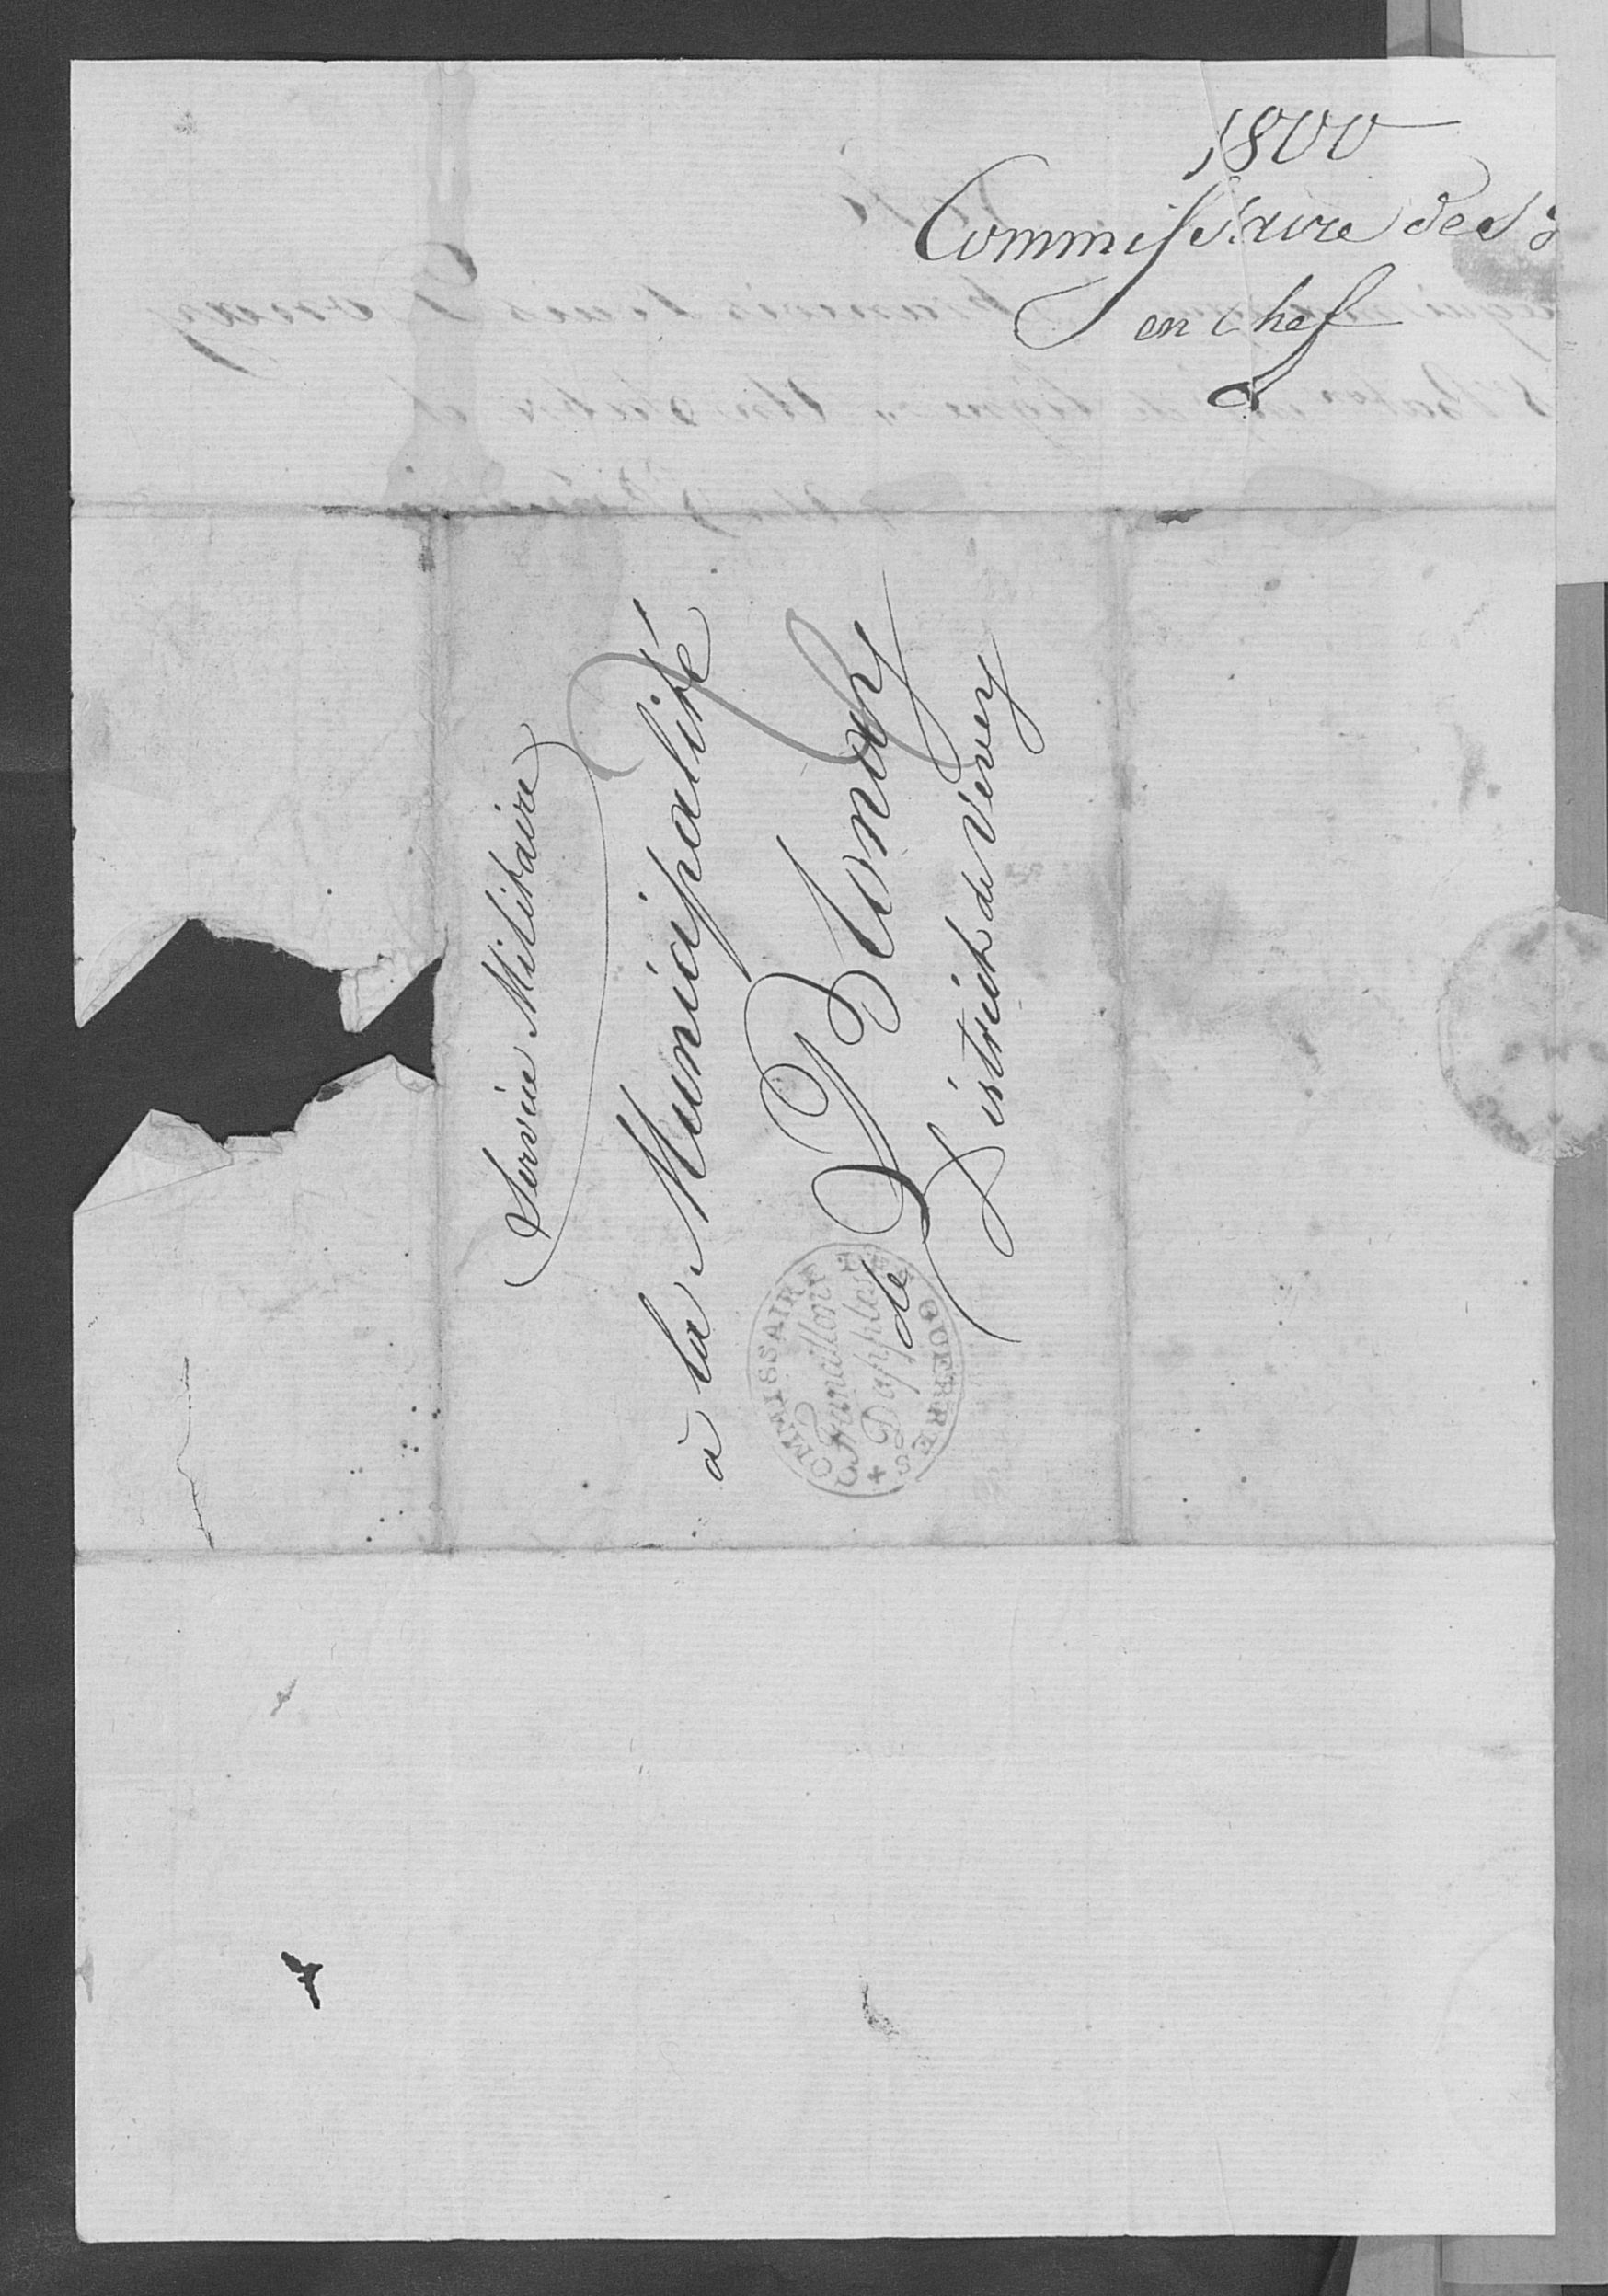 1800
Commissaire des
en chef
Service Militaire
à la Municipalité
de Blonay
District de Vevey
COMMISSAIRE DES GUERRES
Francillon
Dapples